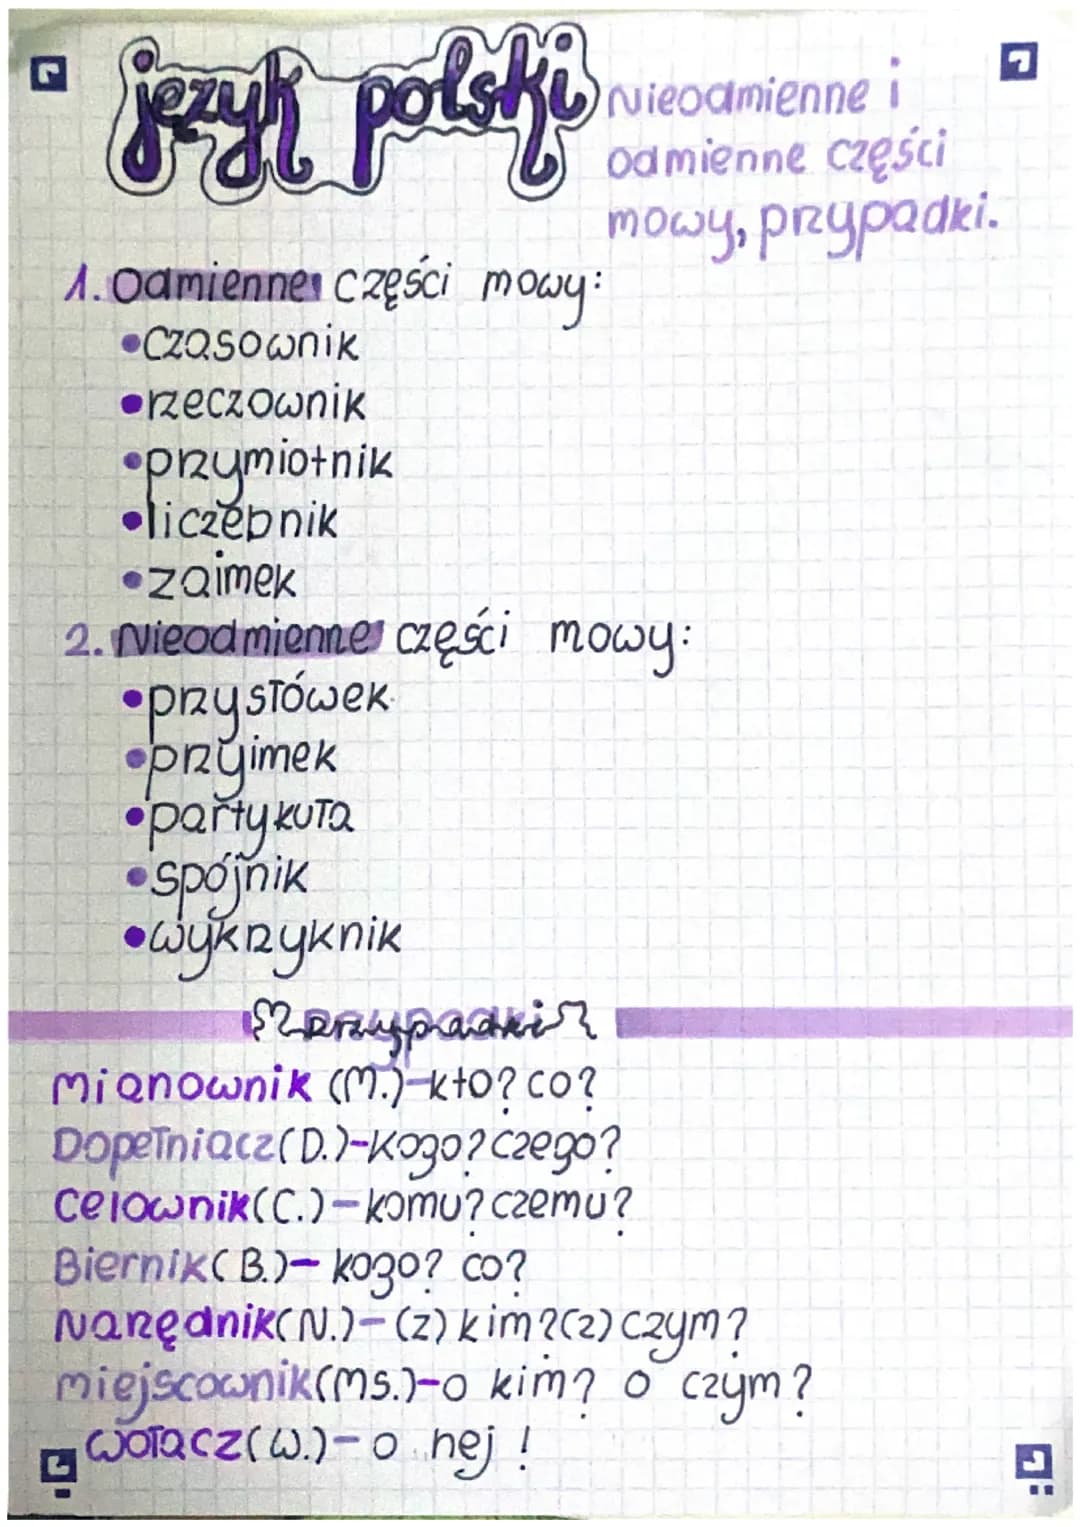 język polski
Nieodmienne i
odmienne części
mowy, przypadki.
1. Odmienne części mowy:
•czasownik
•rzeczownik
•przymiotnik
•liczebnik
•zaimek
2. Nieodmienne części mowy:
•przysłówek
•przyimek
•partykuła
•spójnik
•wykrzyknik
przypadki
Mianownik (M.)-kto? co?
Dopełniacz (D.)-kogo? czego?
Celownik (C.)-komu? czemu?
Biernik (B.)- kogo? co?
Narzędnik (N.)-(z) kim? (z) czym?
miejscownik (Ms.)-o kim? o czym?
wołacz (W.)- o hej!